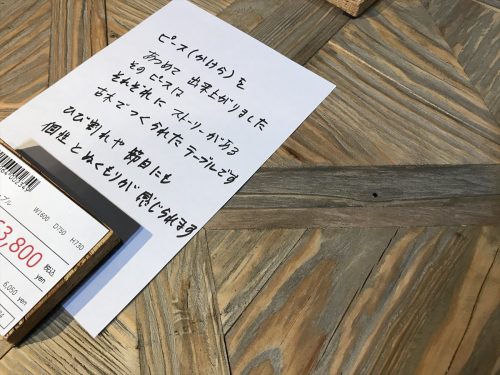 ピース(かけら)を
あつめて 出来上がりました
その ピースは
それぞれに ストーリーがある
古木でつくられた テーブルです
ひび割れや 節目にも
個性 と ぬくもりが 感じられます
ブル
W1600 D750 H730
3,800
税込
yen
6,050 yen